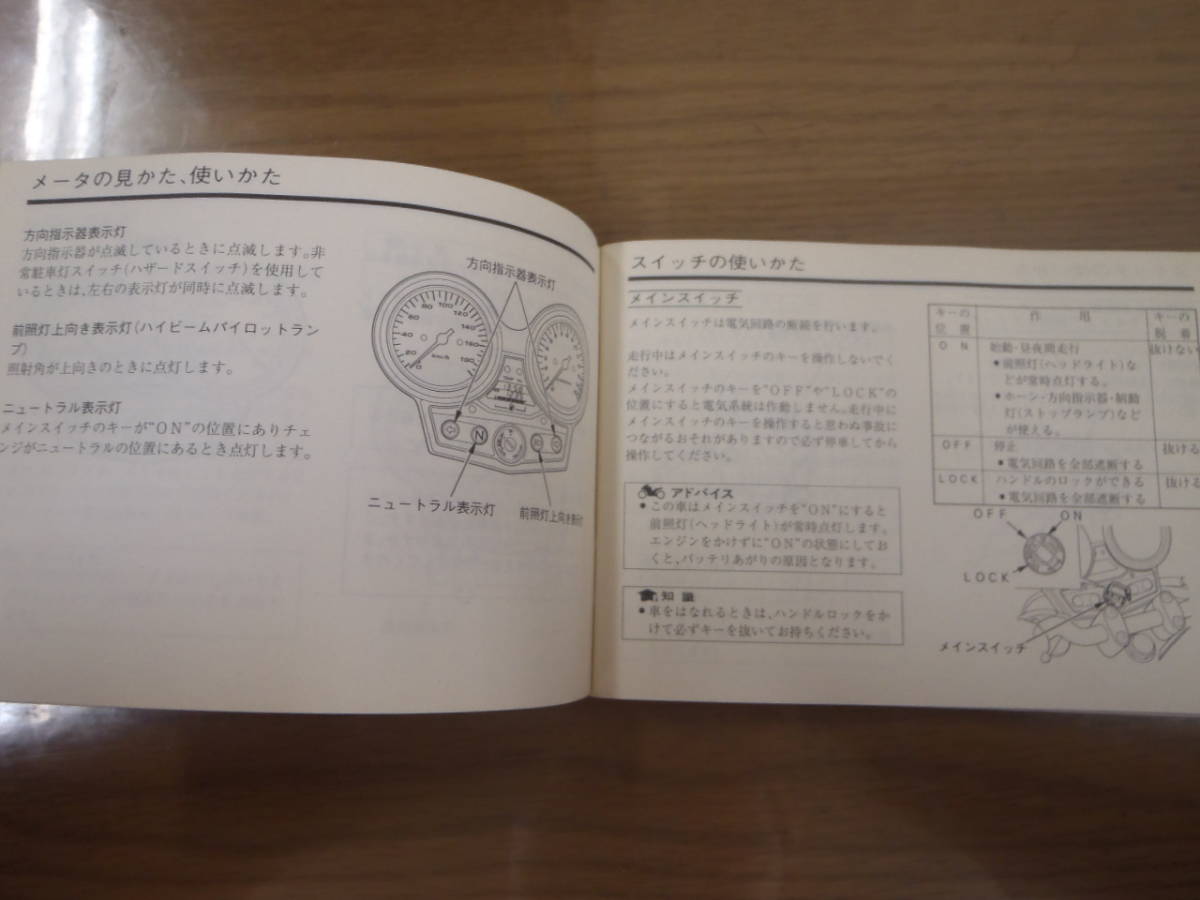 メータの見かた、使いかた
方向指示器表示灯
方向指示器が点滅しているときに点滅します。非
常駐車灯スイッチ(ハザードスイッチ)を使用して
いるときは、左右の表示灯が同時に点滅します。
前照灯上向き表示灯(ハイビームパイロットラン
プ)
照射角が上向きのときに点灯します。
ニュートラル表示灯
メインスイッチのキーが“ON”の位置にありチェ
ンジがニュートラルの位置にあるとき点灯します。
方向指示器表示灯
0
20
40
60
80
100
120
140
160
180
km/h
N
ニュートラル表示灯
前照灯上向き表示灯
スイッチの使いかた
メインスイッチ
メインスイッチは電気回路の断続を行います。
走行中はメインスイッチのキーを操作しないでく
ださい。
メインスイッチのキーを“OFF”や“LOCK”の
位置にすると電気系統は作動しません。走行中に
メインスイッチのキーを操作すると思わぬ事故に
つながるおそれがありますので必ず停車してから
操作してください。
アドバイス
•この車はメインスイッチを“ON”にすると
前照灯(ヘッドライト)が常時点灯します。
エンジンをかけずに“ON”の状態にしてお
くと、バッテリあがりの原因となります。
知識
•車をはなれるときは、ハンドルロックをか
けて必ずキーを抜いてお持ちください。
キーの位置 作用 キーの脱着
ON 始動・昼夜間走行 抜けない
•前照灯(ヘッドライト)な
どが常時点灯する。
•ホーン・方向指示器・制動
灯(ストップランプ)など
が使える。
OFF 停止 抜ける
•電気回路を全部遮断する
LOCK ハンドルのロックができる 抜ける
•電気回路を全部遮断する
OFF ON
LOCK
メインスイッチ